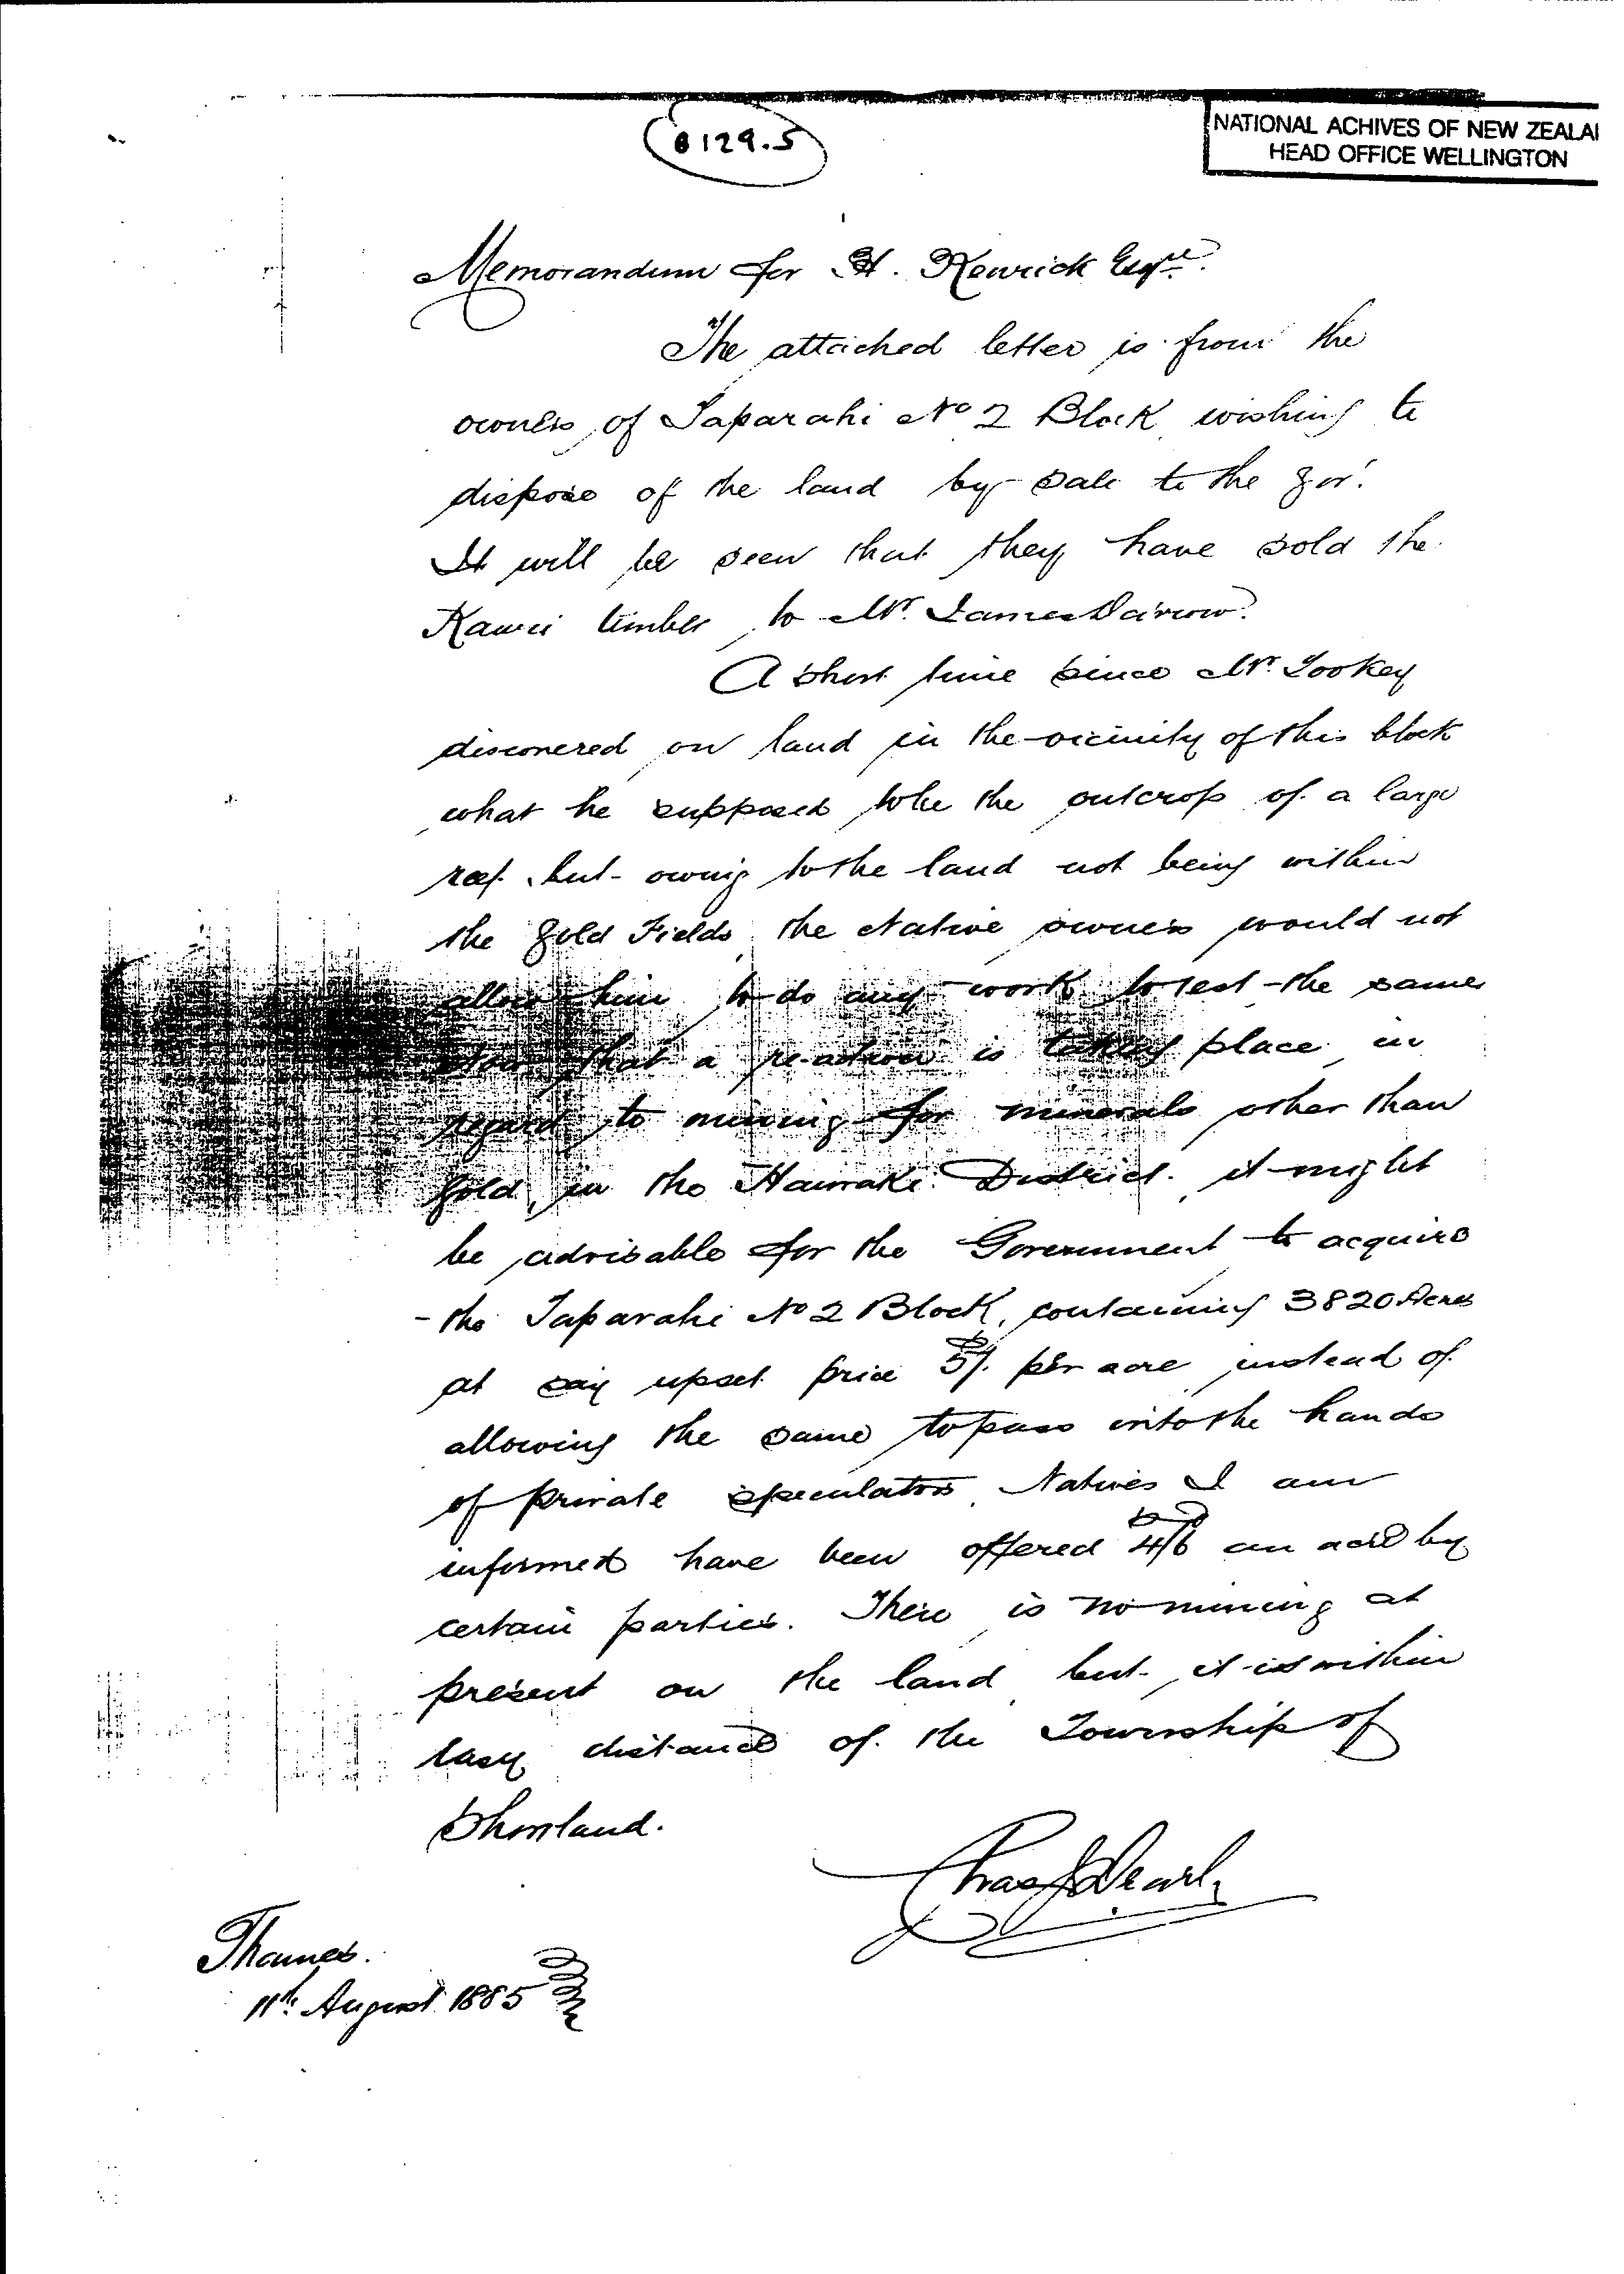 B 129.5
NATIONAL ACHIVES OF NEW ZEALA
HEAD OFFICE WELLINGTON
Memorandum for H. Kenrick Esqre.
The attached letter is from the
owners of Taparahi No 2 Block wishing to
dispose of the land by sale to the Govt.
It will be seen that they have sold the
Kauri timber to Mr. James Darrow.
A short time since Mr. Tookey
discovered on land in the vicinity of this block
what he supposed to be the outcrop of a large
reef but owing to the land not being within
the Gold Fields the Native owners would not
allow him to do any work to test the same
Now that a re-action is taking place in
regard to mining for minerals other than
gold in the Hauraki District it might
be advisable for the Government to acquire
the Taparahi No 2 Block, containing 3820 Acres
at say upset price 5/. per acre instead of
allowing the same to pass into the hands
of private speculators Natives I am
informed have been offered 4/6 an acre by
certain parties. There is no mining at
present on the land but it is within
easy distance of the Township of
Shortland.
Thames.
11th August 1885